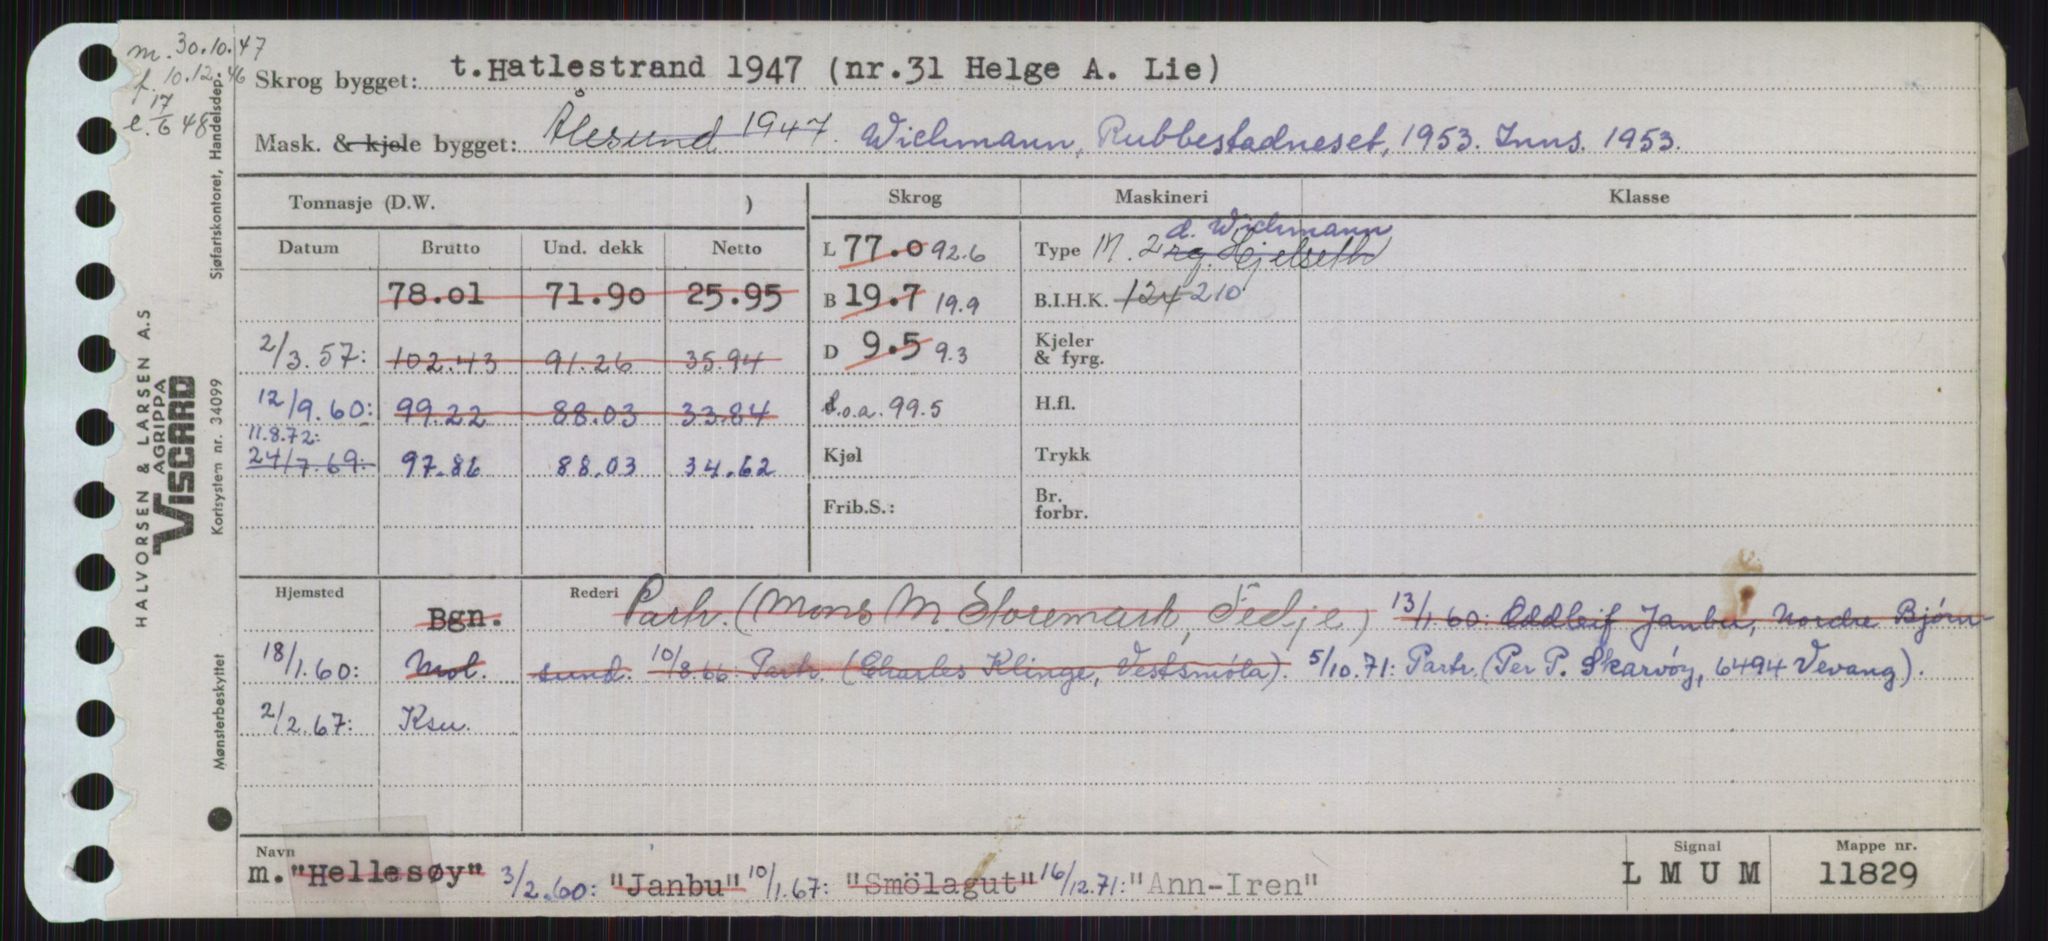 m. 30.10.47
f. 10.12.46
e. 17/6 48
Skrog bygget: t.Hatlestrand 1947 (nr.31 Helge A. Lie)
Mask. & kjele bygget: Ålesund 1947. Wichmann, Rubbestadneset, 1953. Inns. 1953.
Tonnasje (D.W. ) Skrog Maskineri Klasse
Datum Brutto Und. dekk Netto L 77.0 92.6 Type M. 2 rg. Hjelseth d. Wichmann
78.01 71.90 25.95 B 19.7 19.9 B.I.H.K. 124 210
2/3.57: 102.43 91.26 35.94 D 9.5 9.3 Kjeler & fyrg.
12/9.60: 99.22 88.03 33.84 l.o.a. 99.5 H.fl.
11.8.72:
24/7.69: 97.86 88.03 34.62 Kjøl Trykk
Frib.S.: Br. forbr.
Hjemsted Rederi
Bgn. Partr. (Mons M. Storemark, Fedje) 13/1 60: Oddleif Janbu, Nordre Bjørn-
18/1.60: Mol. sund. 10/8.66: Partr. (Charles Klinge, Vestsmöla). 5/10.71: Partr. (Per P. Skarvøy, 6494 Vevang).
2/2.67: Ksu.
Navn Signal Mappe nr.
m. "Hellesøy" 3/2.60: "Janbu" 10/1.67: "Smölagut" 16/12.71: "Ann-Iren" L M U M 11829
HALVORSEN & LARSEN A.S
AGRIPPA
VISCARD
Kortsystem nr. 34099
Sjøfartskontoret, Handelsdep.
Mønsterbeskyttet